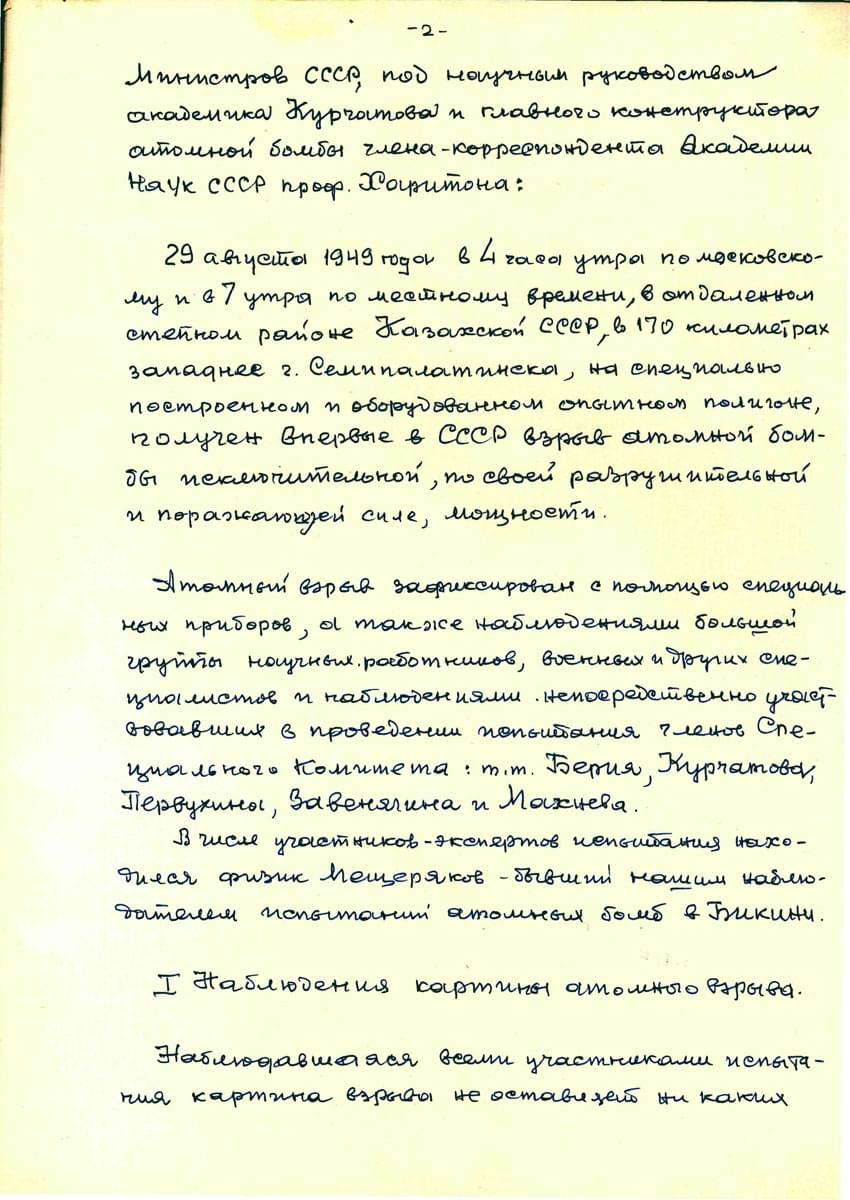 -2-
Министров СССР, под научным руководством
академика Курчатова и главного конструктора
атомной бомбы члена-корреспондента Академии
Наук СССР проф. Харитона:
29 августа 1949 года в 4 часа утра по московско-
му и в 7 утра по местному времени, в отдаленном
степном районе Казахской СССР, в 170 километрах
западнее г. Семипалатинска, на специально
построенном и оборудованном опытном полигоне,
получен впервые в СССР взрыв атомной бом-
бы исключительной, по своей разрушительной
и поражающей силе, мощности.
Атомный взрыв зафиксирован с помощью специаль
ных приборов, а также наблюдениями большой
группы научных работников, военных и других спе-
циалистов и наблюдениями непосредственно участ-
вовавших в проведении испытания членов Спе-
циального Комитета: т.т. Берия, Курчатова,
Первухины, Завенягина и Махнева.
В числе участников-экспертов испытания нахо-
дился физик Мещеряков - бывший нашим наблю-
дателем испытаний атомных бомб в Бикини.
I Наблюдения картины атомного взрыва.
Наблюдавшаяся всеми участниками испыта-
ния картина взрыва не оставляет ни каких